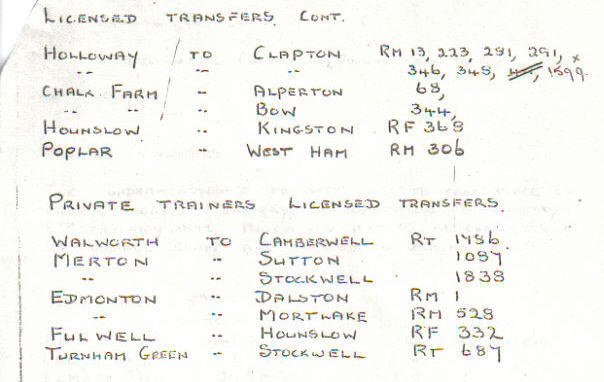 LICENSED TRANSFERS CONT.
HOLLOWAY TO CLAPTON RM 13, 223, 281, 291, x
-- -- -- 346, 348, 1599.
CHALK FARM -- ALPERTON 68,
-- -- -- BOW 344,
HOUNSLOW -- KINGSTON RF 368
POPLAR -- WEST HAM RM 306
PRIVATE TRAINERS LICENSED TRANSFERS.
WALWORTH TO CAMBERWELL RT 1486.
MERTON -- SUTTON 1087
-- -- STOCKWELL 1838
EDMONTON -- DALSTON RM 1
-- -- MORTLAKE RM 528
FULWELL -- HOUNSLOW RF 332
TURNHAM GREEN -- STOCKWELL RT 687